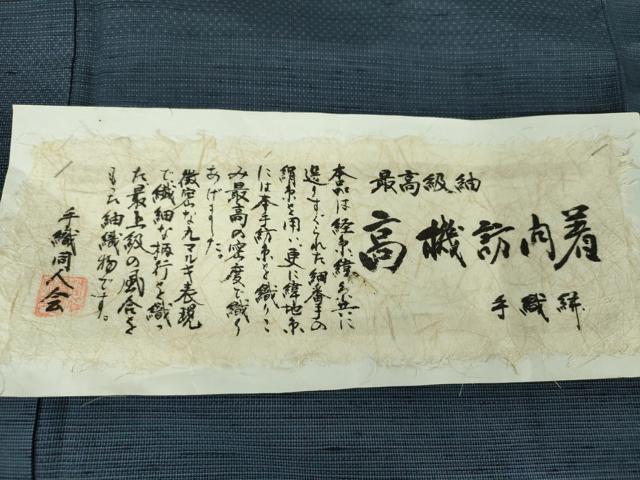 最高級紬
高機訪問着
手織絣
本品は経糸緯糸共に
選りすぐられた細番手の
絹糸を用い、更に緯地糸
には本手紡糸を織りこ
み最高の密度で織り
あげました。
微密な九マルキ表現
で繊細な柄行を織っ
た最上級の風合を
もつ紬織物です。
手織同人会